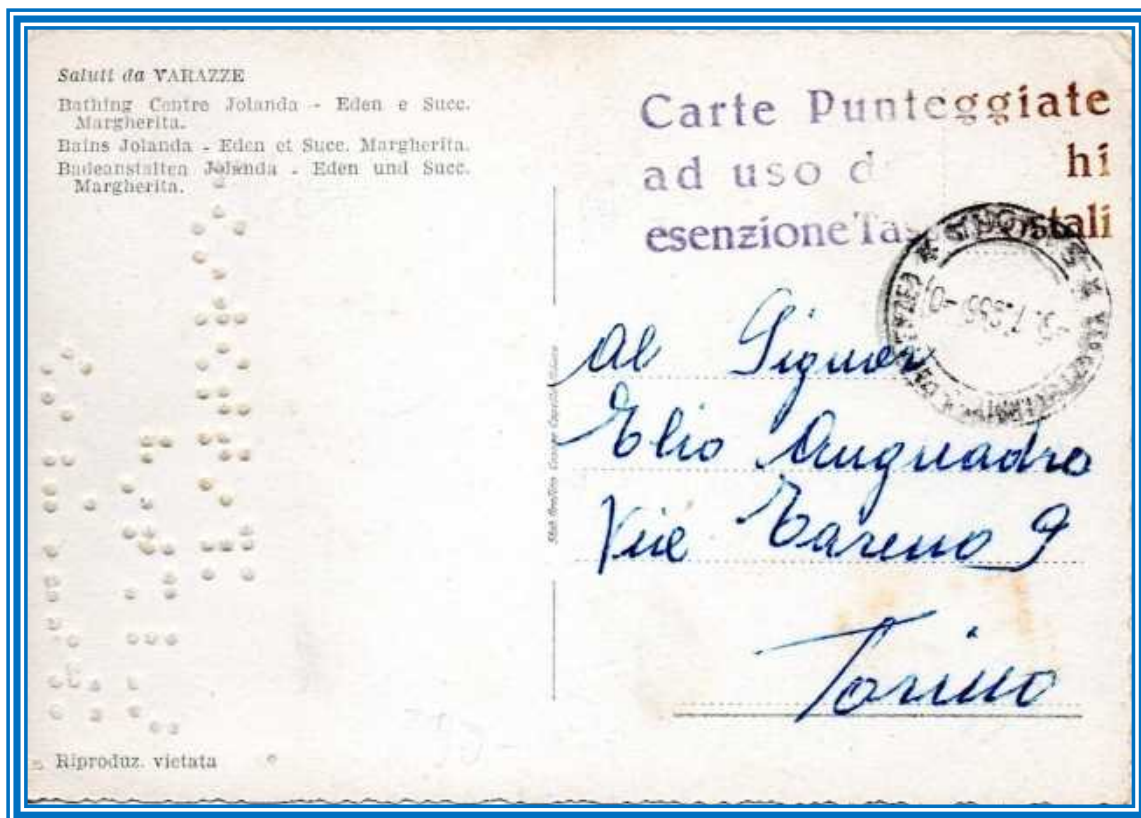 Saluti da VARAZZE
Bathing Centre Jolanda - Eden e Succ.
Margherita.
Bains Jolanda - Eden et Succ. Margherita.
Badeanstalten Jolanda - Eden und Succ.
Margherita.
Carte Punteggiate
ad uso d hi
esenzione Tas ostali
Al Signor
Elio Anguadro
Torino
Riproduz. vietata